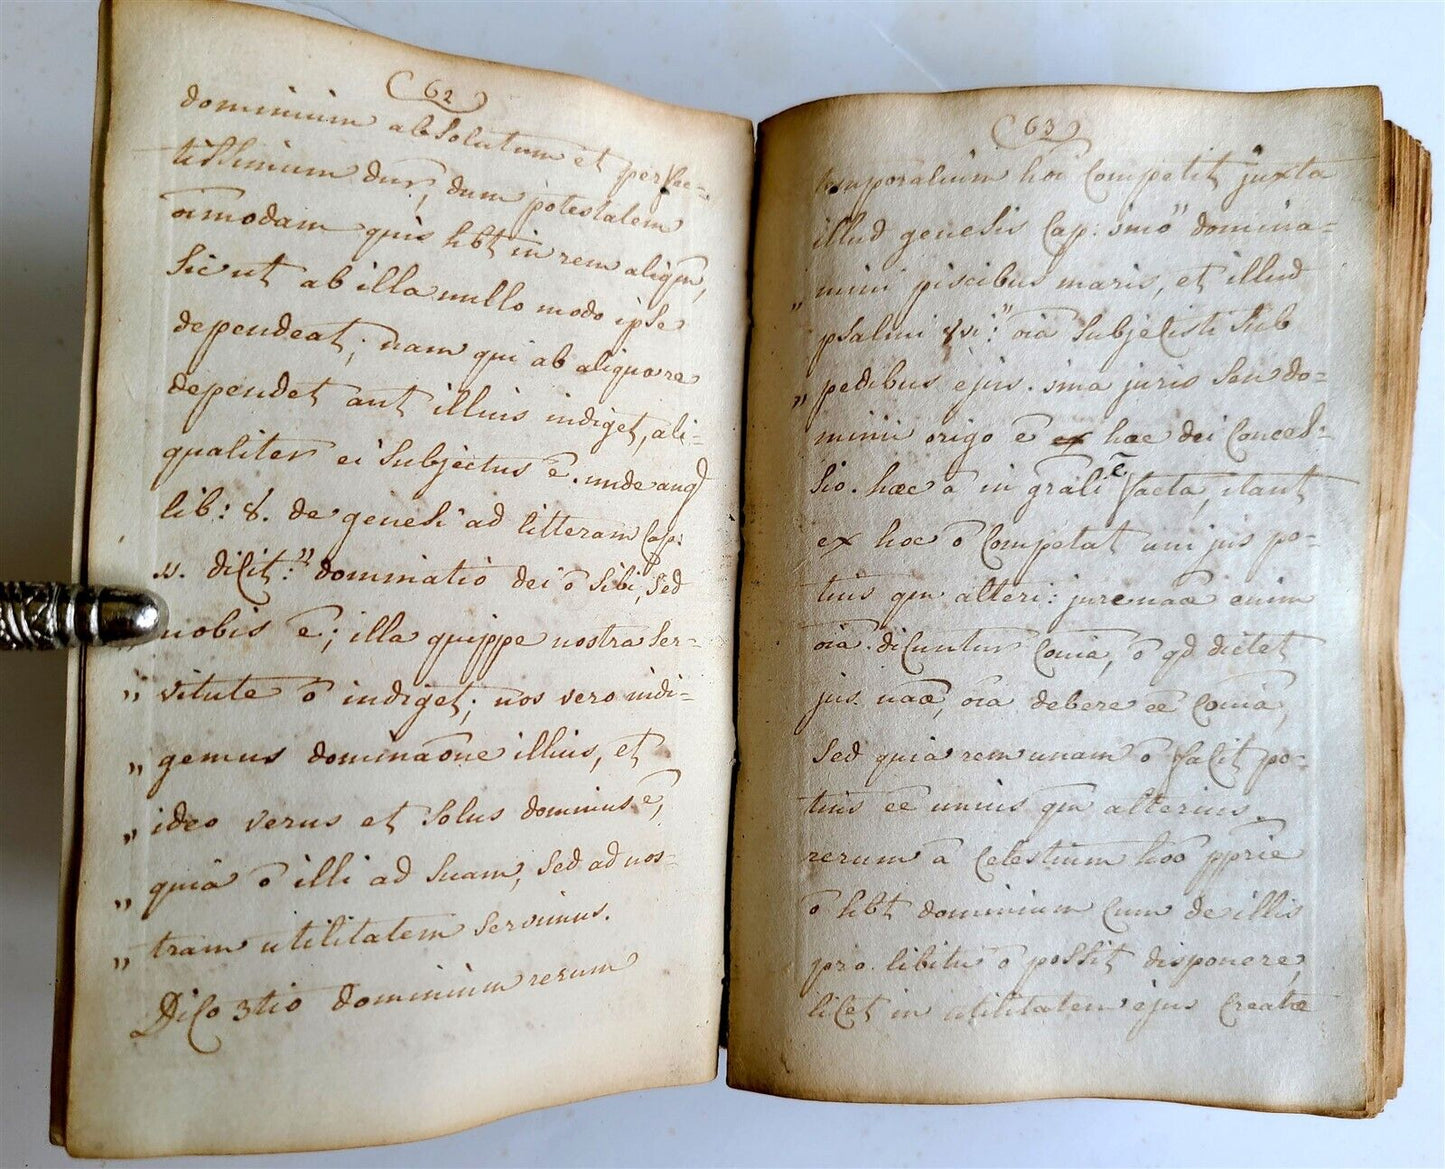 (62)
dominium absolutum et perfec=
tissimum dur̄, dum potestatem
oīmodam quis hbt in rem aliqm̄,
sicut ab illa nullo modo ipse
dependeat; nam qui ab aliqua re
dependet aut illius indiget, ali=
qualiter ei subjectus ē. unde aug
lib: 8. de genesi ad litteram Cap:
11. dicit: " dominatio dei ō sibi, sed
nobis ē; illa quippe nostra ser=
" vitute ō indiget; nos vero indi=
" gemus dominaōne illius, et
" ideo verus et solus dominus ē,
" quia ō illi ad suam, sed ad nos=
" tram utilitatem servimus.
Dico 3tio dominium rerum
(63)
temporalium hoī competit juxta
illud genesis Cap: imō " domina=
" mini piscibus maris, et illud
psalmi 8vi: " oīa subjecisti sub
" pedibus ejus. īma juris seu do=
minii origo ē ex hac dei conces=
sio. hæc ā in grāli ē facta, itaut
ex hoc ō competat uni jus po=
tius qm alteri: jure naæ enim
oīa dicuntur coīnia, ō qd dictet
jus naæ, oīa debere eē coīnia,
sed quia rem unam ō facit po=
tius eē unius qm alterius.
rerum ā celestium hoō pprie
ō hbt dominium cum de illis
pro libitu ō possit disponere,
licet in utilitatem ejus creatæ